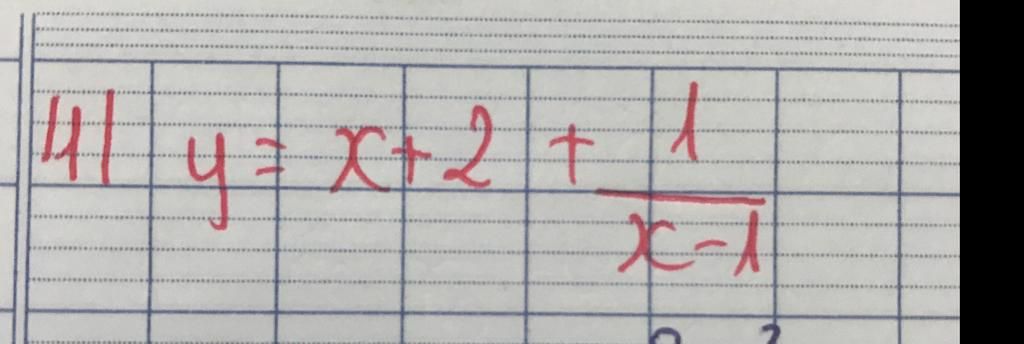 4| y = x + 2 + 1/(x - 1)